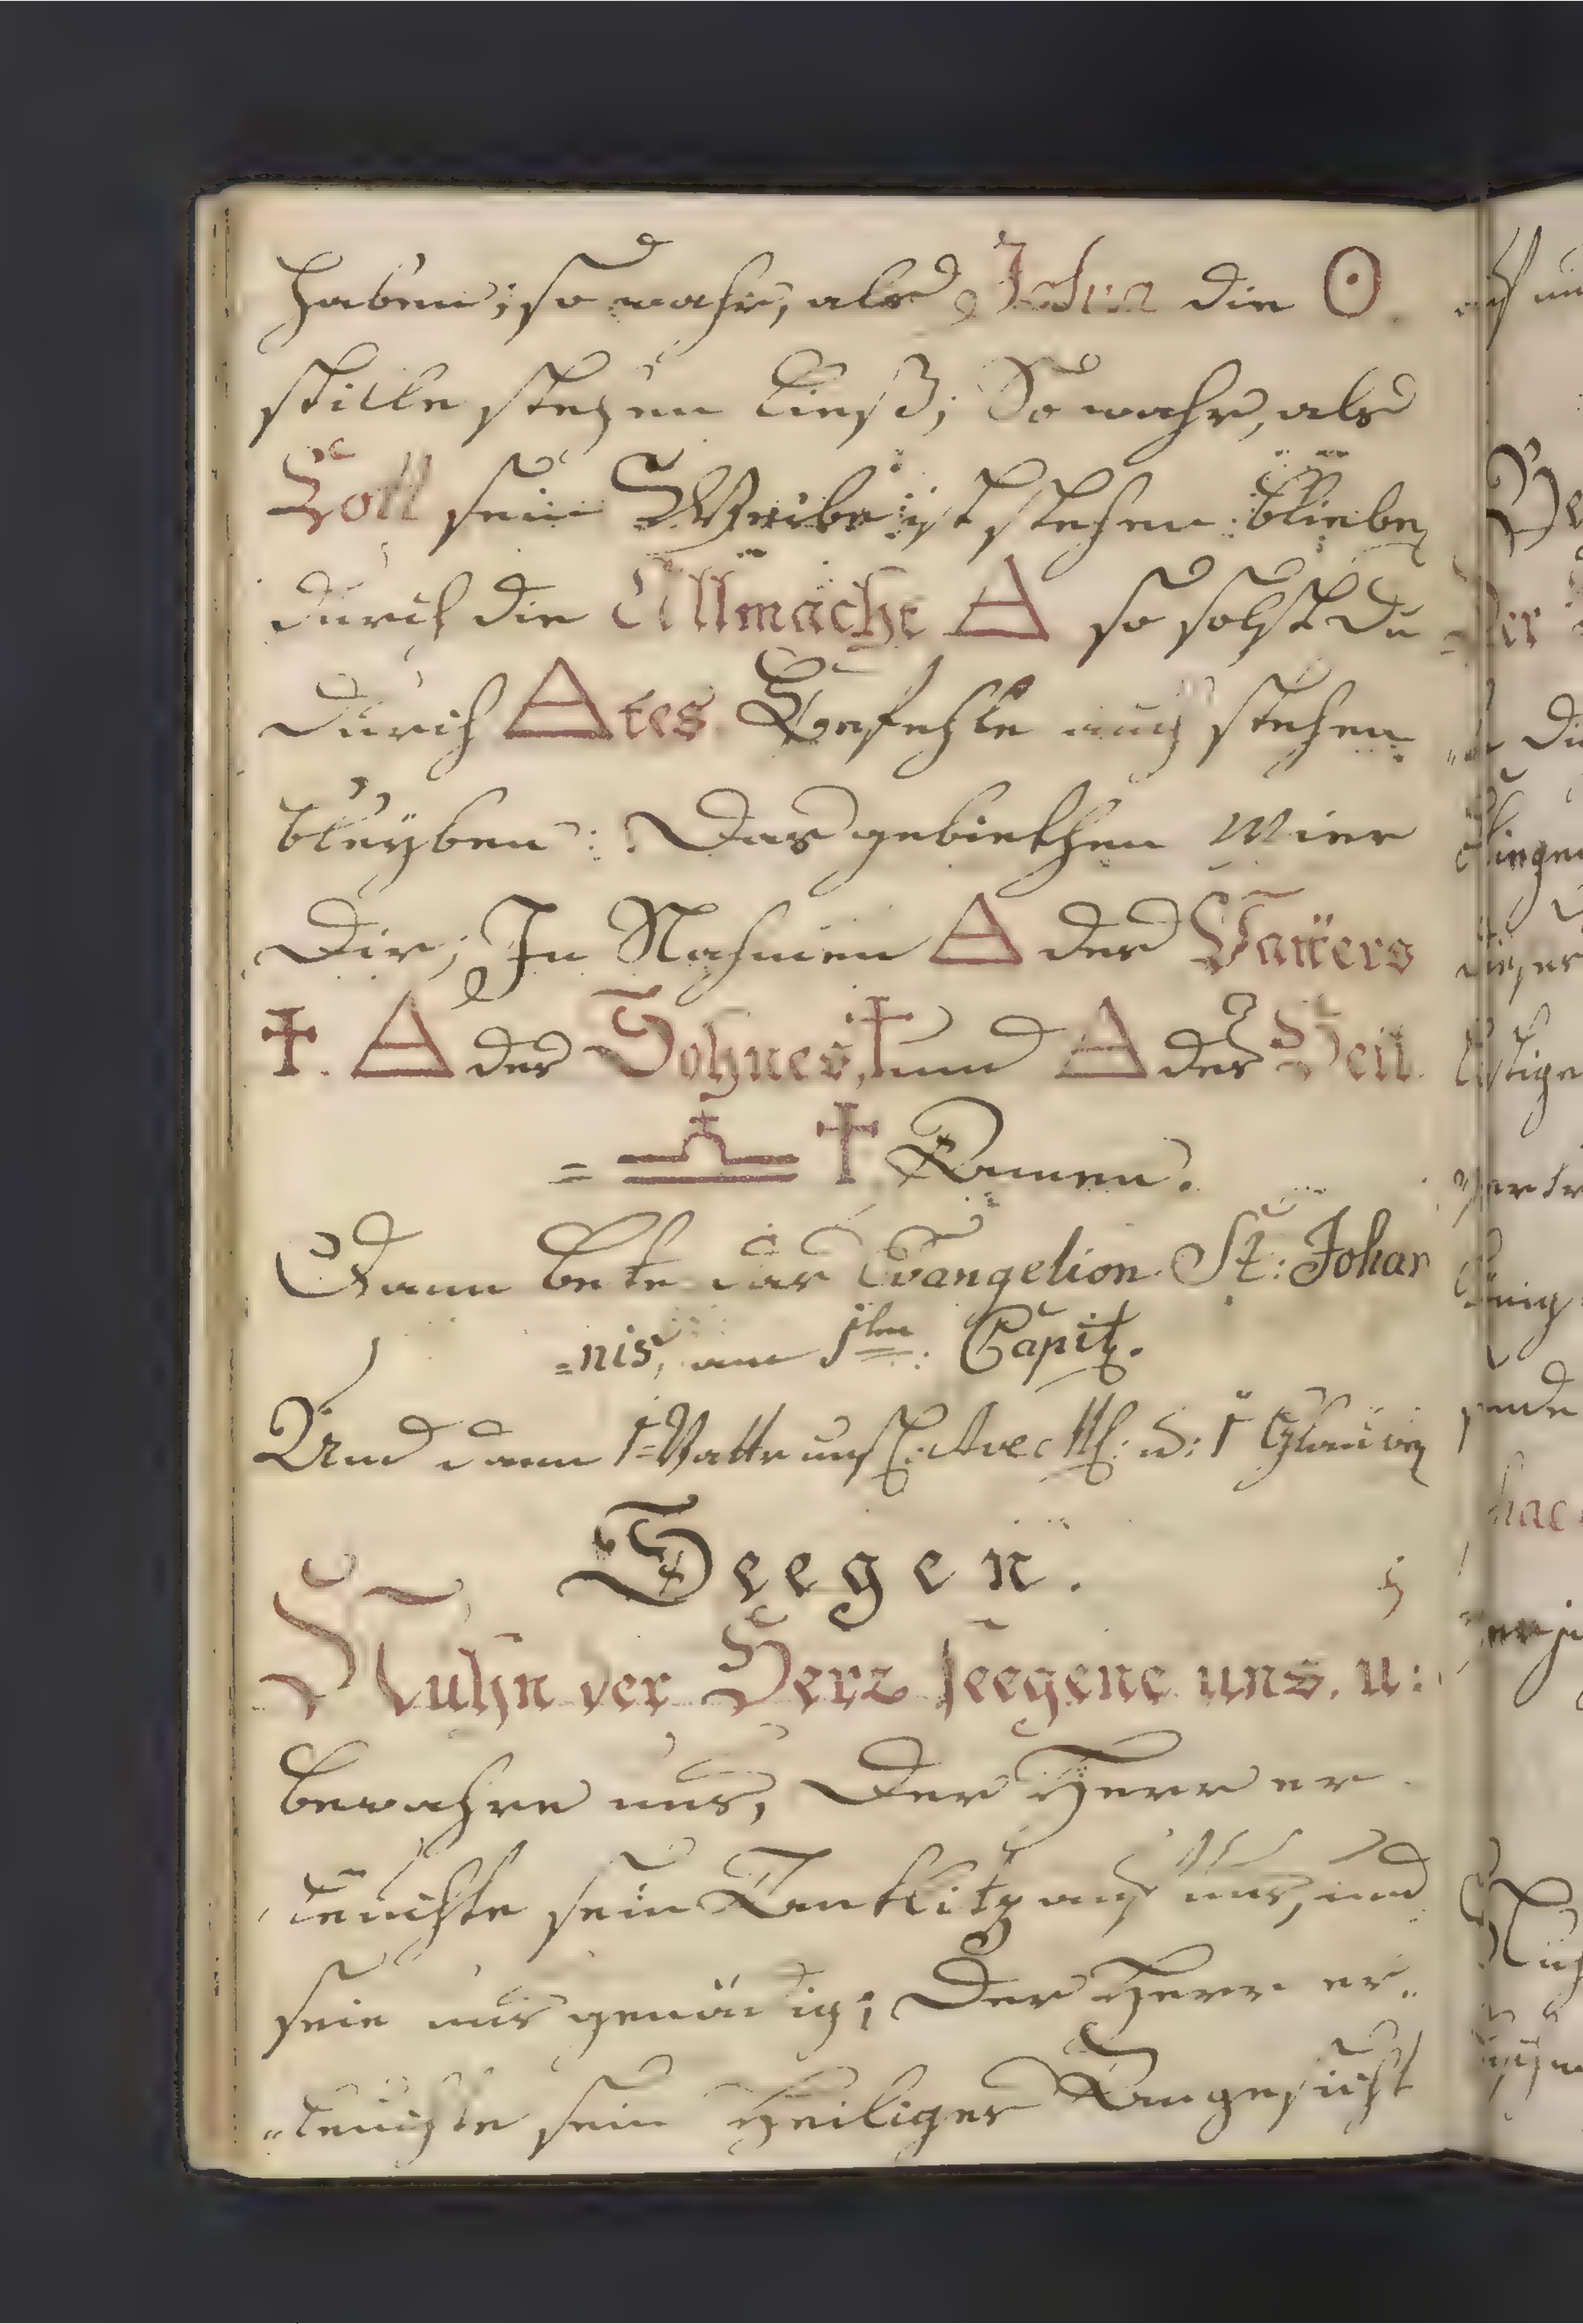 haben; so wahr, als Josua die ☉
stille stehen ließ; So wahr, als
Lott sein Weibe ist stehen bliebe
durch die Allmacht △ so solst du
durch △tes Befehle auch stehen
bleyben: Das gebiethen Wier
Dir; In Nahmen △ des Vatters
✝. △ des Sohnes, ✝ und △ des Heil.
= ✝ Aamen.
Dann bete das Evangelion St: Johan
=nis, am 1ten: Capit.
Und dann 1 Vatter uns: Ave M: u: 1 Glauben
Seegen.
Nuhn der Herr seegene uns, u:
bewahre uns, Der Herr er
leuchte sein Antlitz auf uns, und
seie uns genädig; Der Herr er„
„leuchte sein Heiliges Angesicht